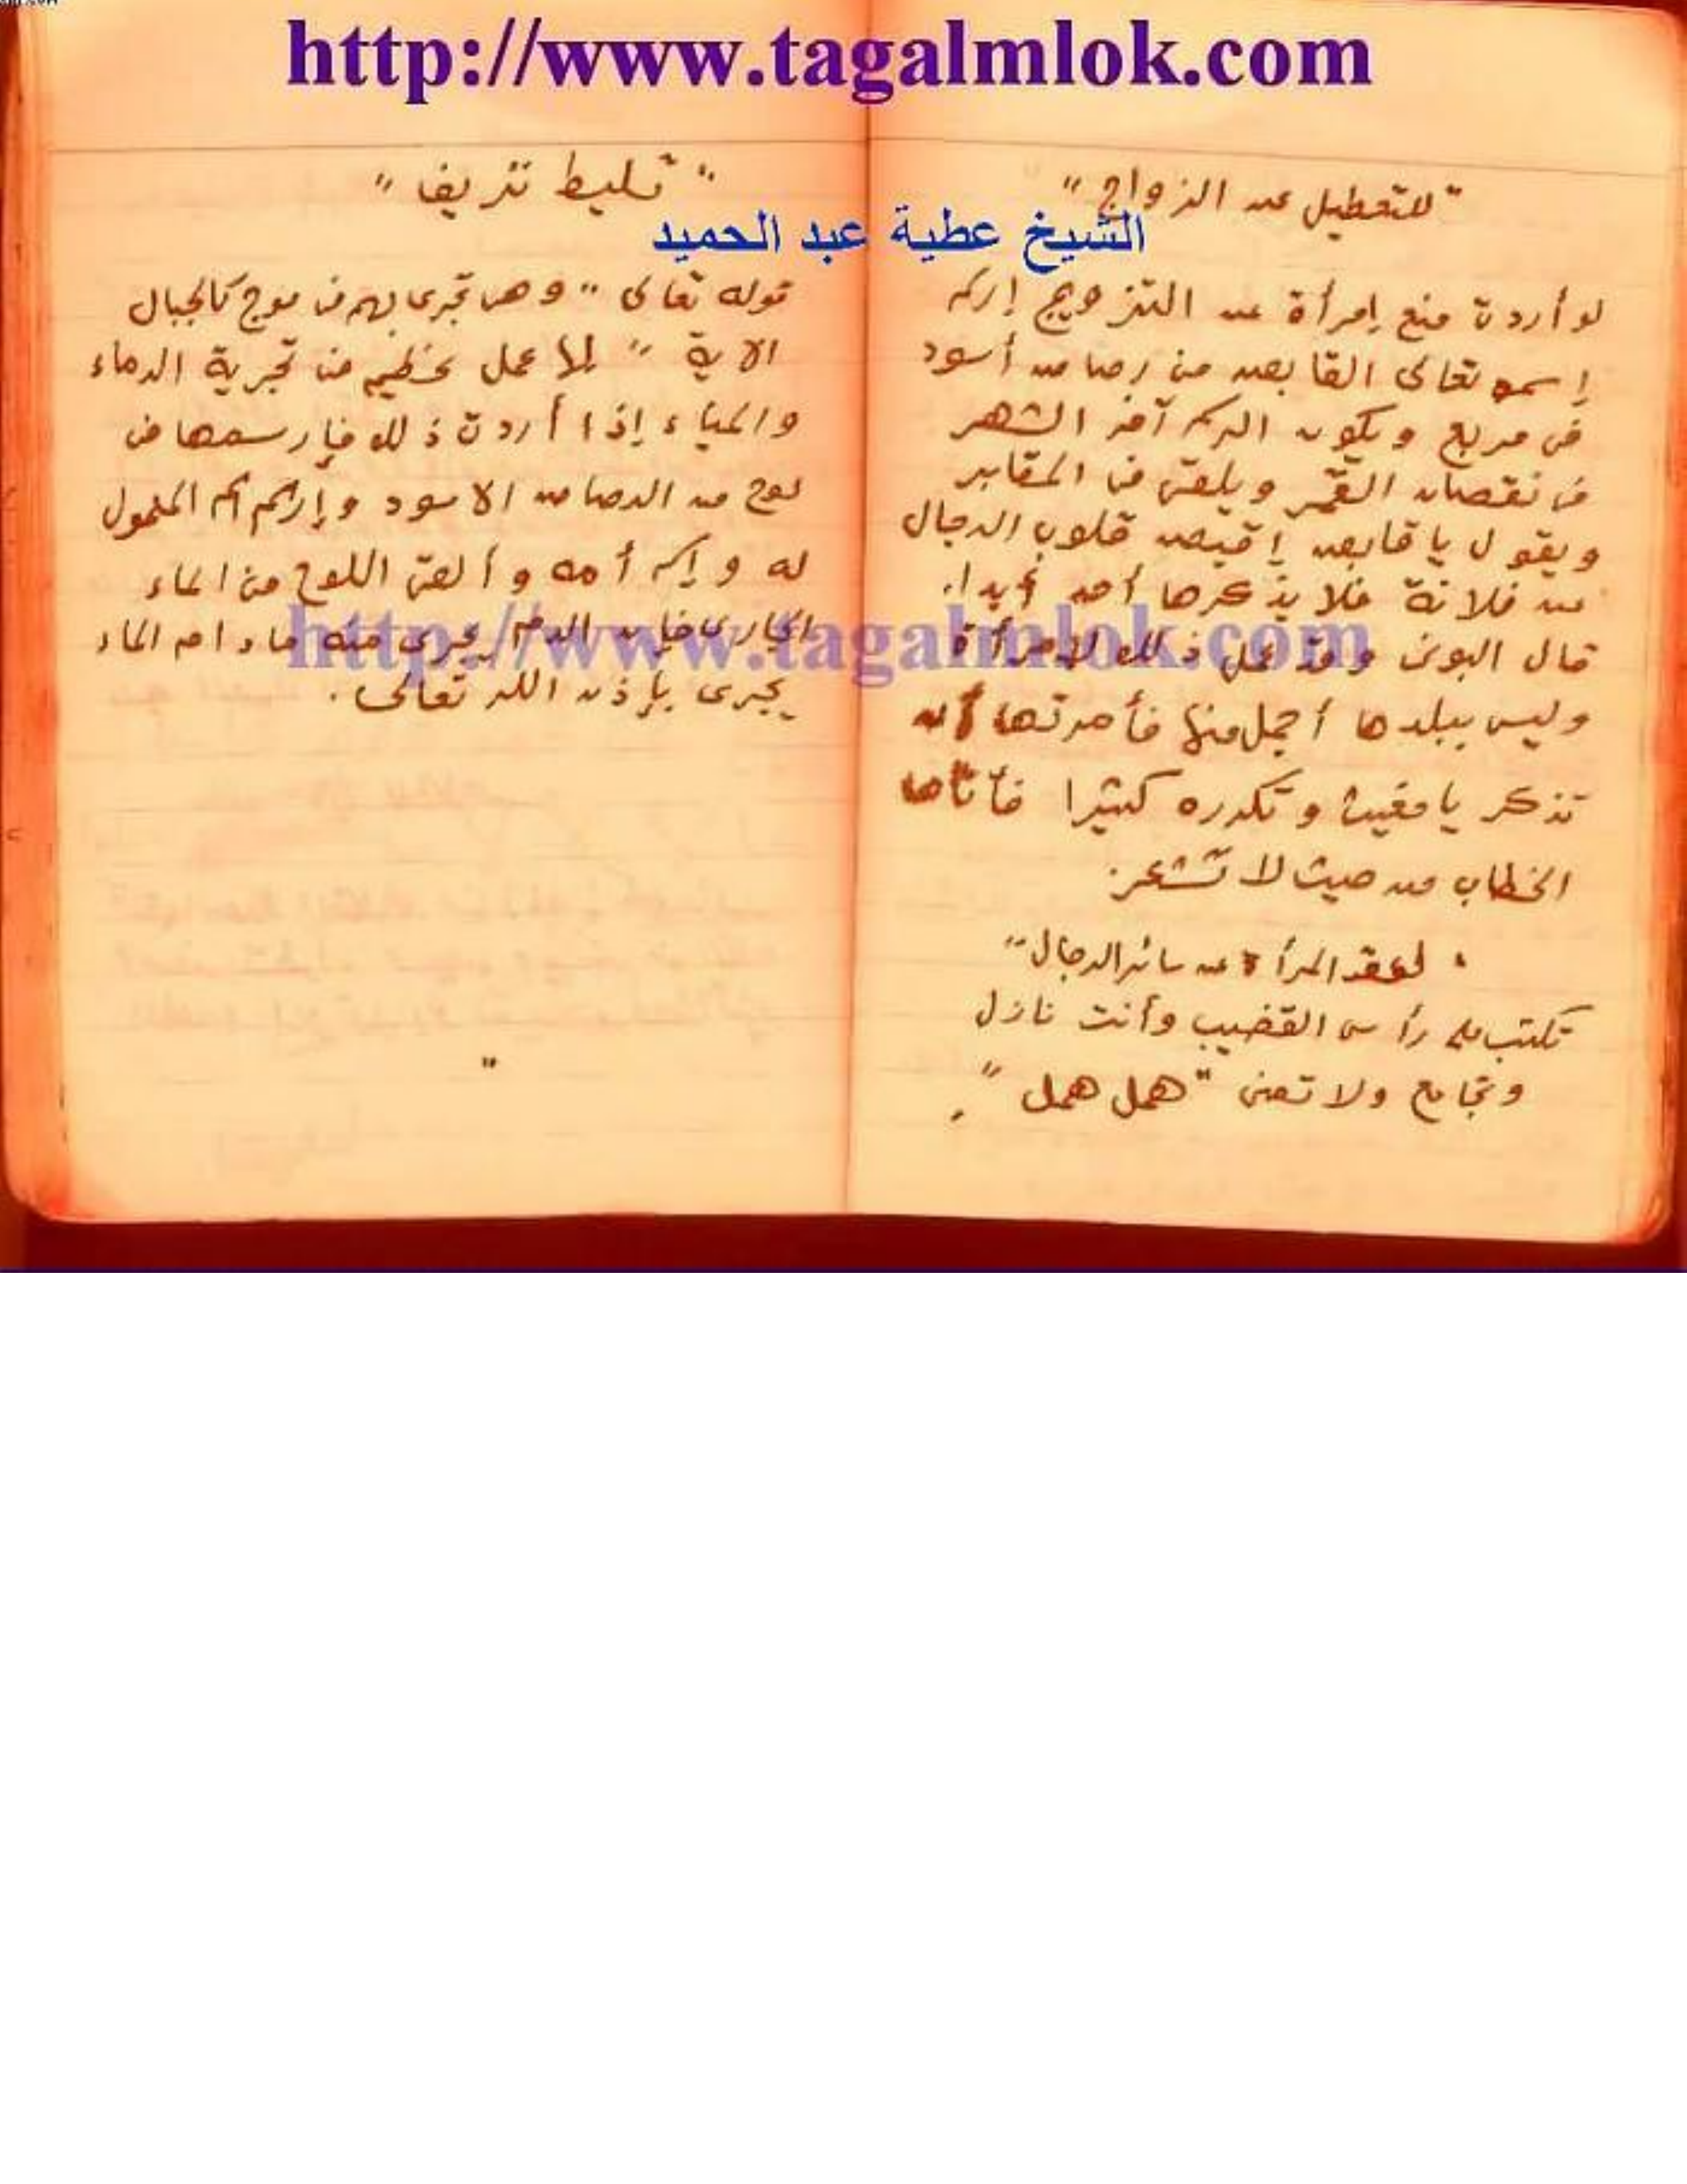 http://www.tagalmlok.com
الشيخ عطية عبد الحميد
" للتعطيل عن الزواج "
لو أردت منع إمرأة عن التزويج إرسم
إسمه تعالى القابض من رصاص أسود
فى مربع ويكون الرسم آخر الشهر
فى نقصان القمر ويلقى فى المقابر
ويقول يا قابض إقبض قلوب الرجال
عن فلانة فلا يذكرها أحد أبدا.
قال البونى وقد عمل ذلك لإمرأة
وليس ببلدها أجمل منها فأمرتها أن
تذكر يا مغيث وتكرره كثيرا فأتاها
الخطاب من حيث لا تشعر.
" لعقد المرأة عن سائر الرجال "
تكتب على رأس القضيب وأنت نازل
وتجامع ولا تمنى " همل همل ".
" تسليط نزيف "
قوله تعالى " وهى تجرى بهم فى موج كالجبال
الاية " لها عمل عظيم فى تجرية الدماء
والمياء إذا أردت ذلك فإرسمها فى
لوح من الرصاص الاسود وإرسم اسم المعمول
له وإسم أمه وألقى اللوح فى الماء
الجارى فإن الدم يجرى منه مادام الماء
يجرى بإذن الله تعالى.
"
http://www.tagalmlok.com